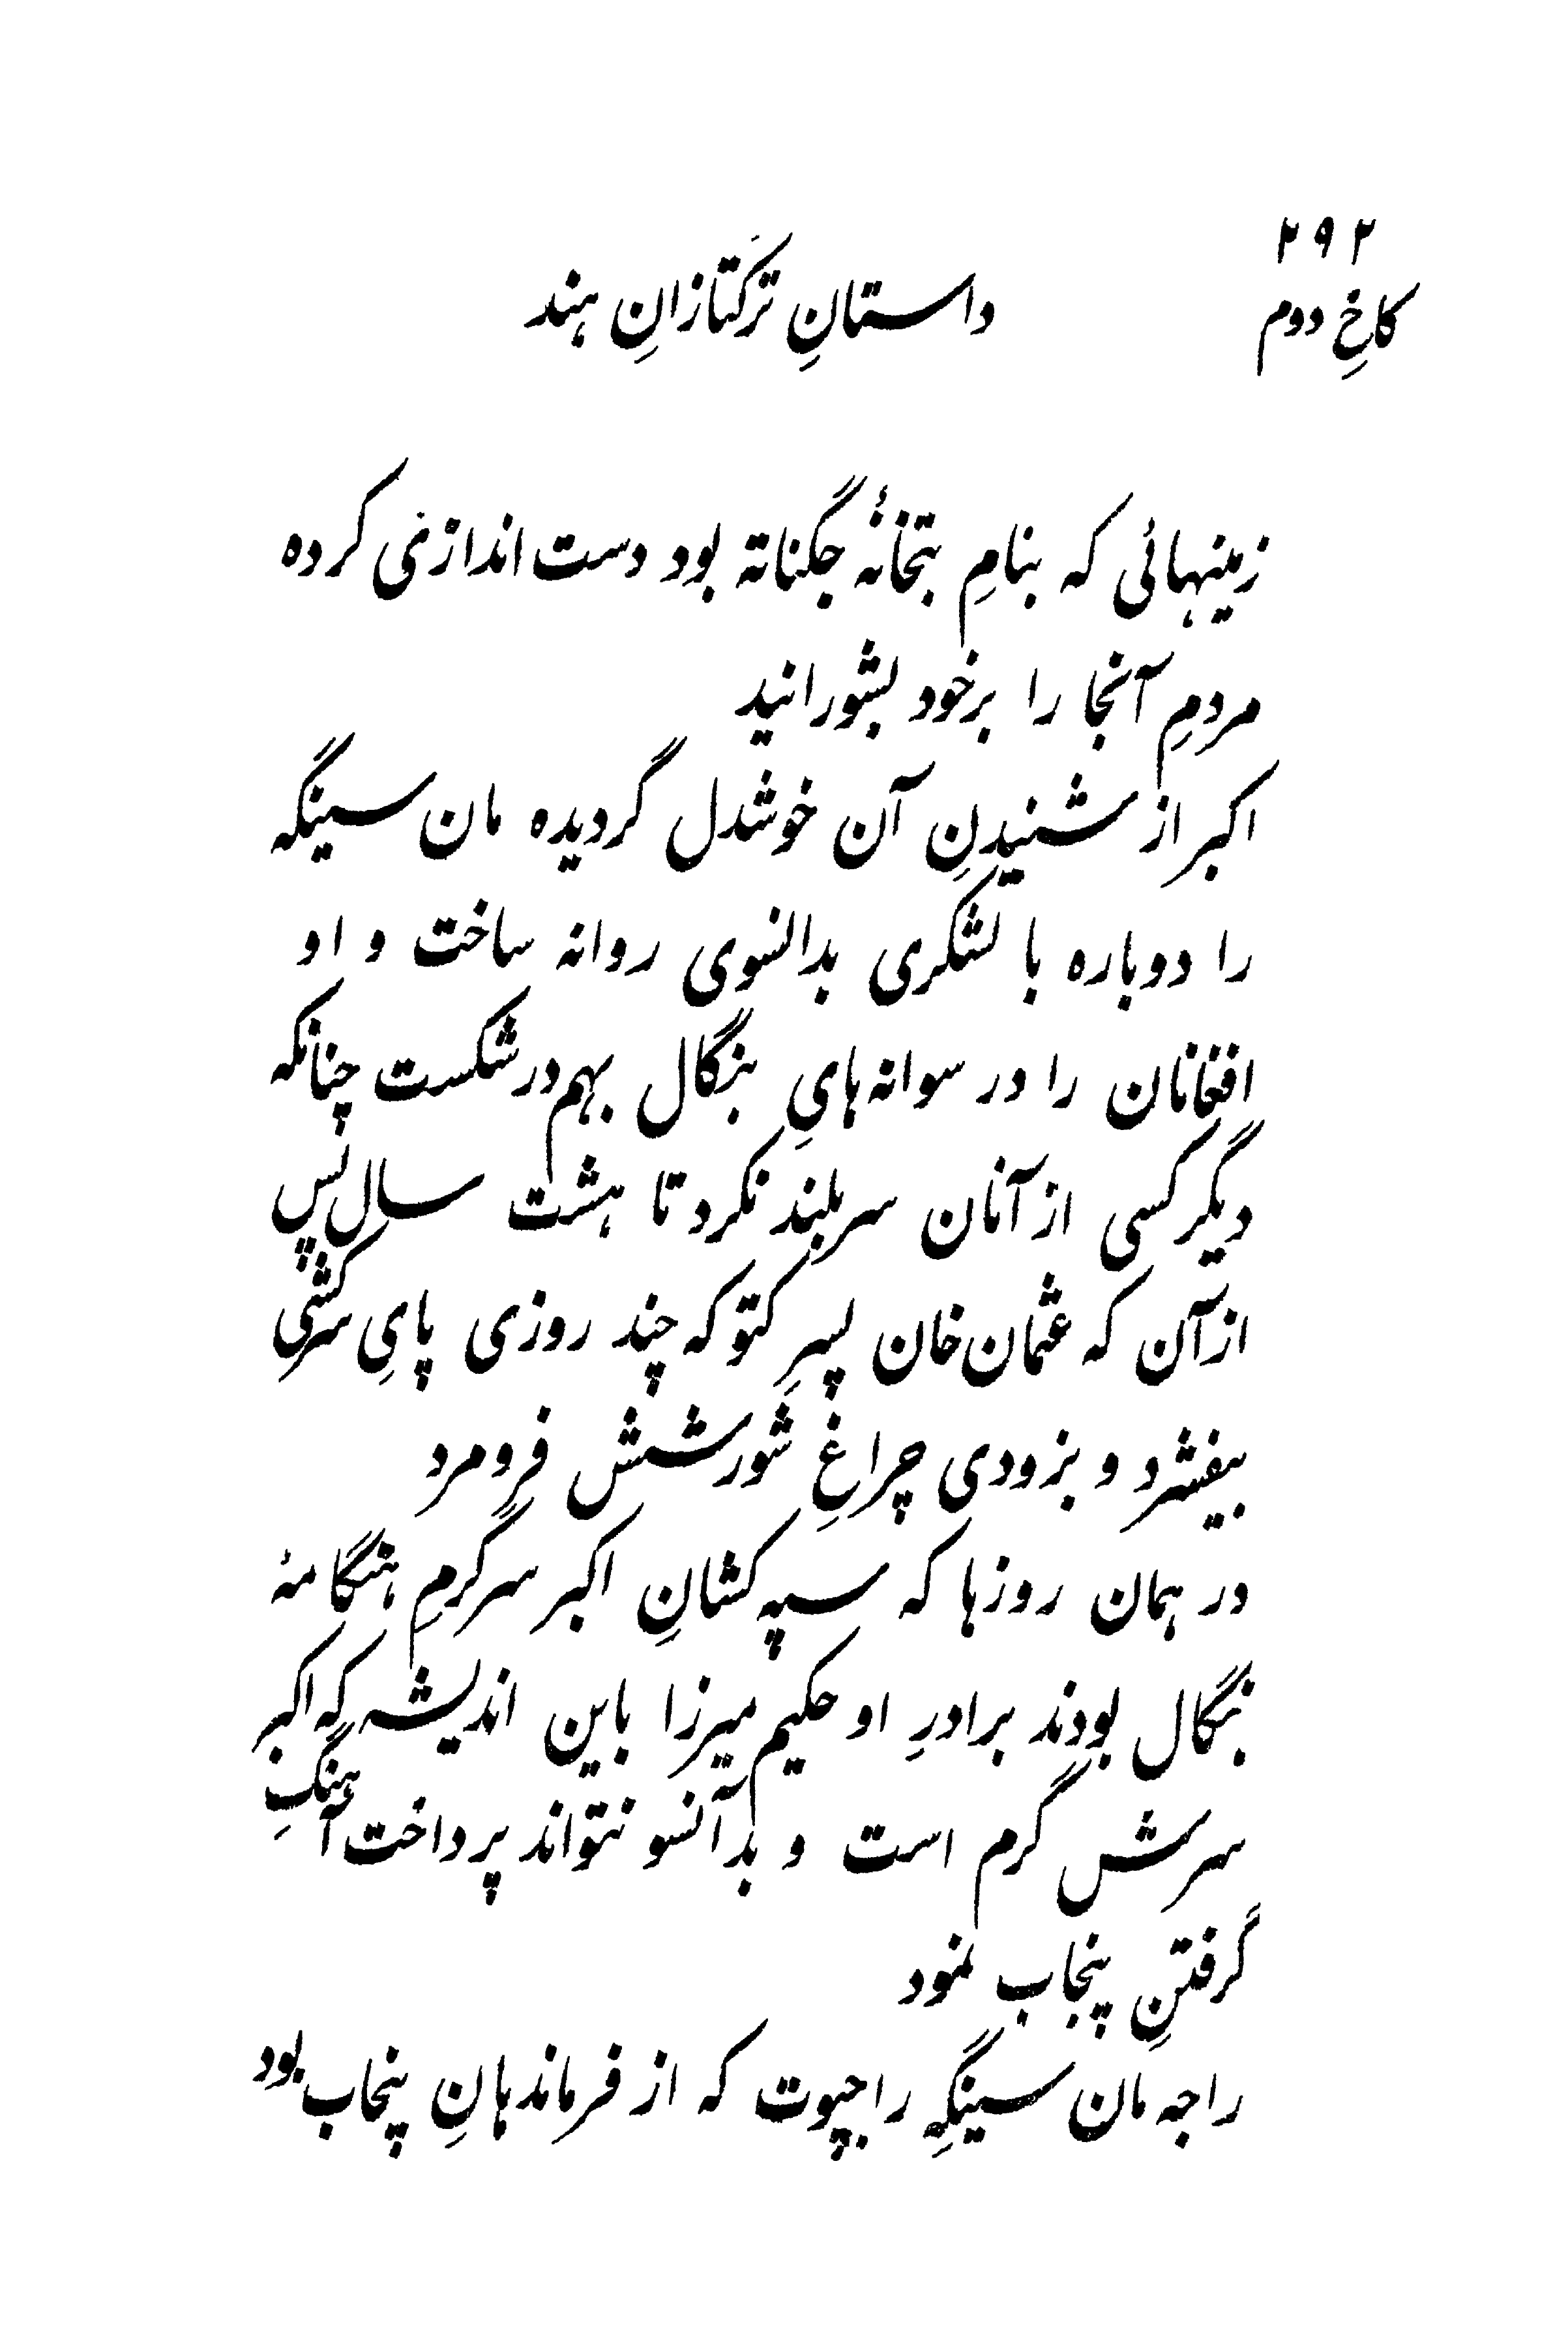 ۲۹۲
کاخِ دوم
داستانِ ترکتازانِ هند
زمینهائی که بنامِ بتخانهٔ جگناته بود دست اندازی کرده
مردمِ آنجا را برخود بشورانید
اکبر از شنیدنِ آن خوشدل گردیده مان سینگه
را دوباره با لشکری بدانسوی روانه ساخت و او
افغانان را در سوانه‌هایِ بنگال بهم درشکست چنانکه
دیگر کسی از آنان سر بلند نکرد تا هشت سالِ پس
از آن که عثمان خان پسرِ کتو که چند روزی پایِ سرکشی
بیفشرد و بزودی چراغِ شورشش فرو مرد
در همان روزها که سپه کشانِ اکبر سرگرمِ هنگامهٔ
بنگال بودند برادرِ او حکیم میرزا باین اندیشه که اکبر
سرش گرم است و بدآنسو نتواند پرداخت آهنگِ
گرفتنِ پنجاب نمود
راجه مان سینگهِ راجپوت که از فرماندهانِ پنجاب بود